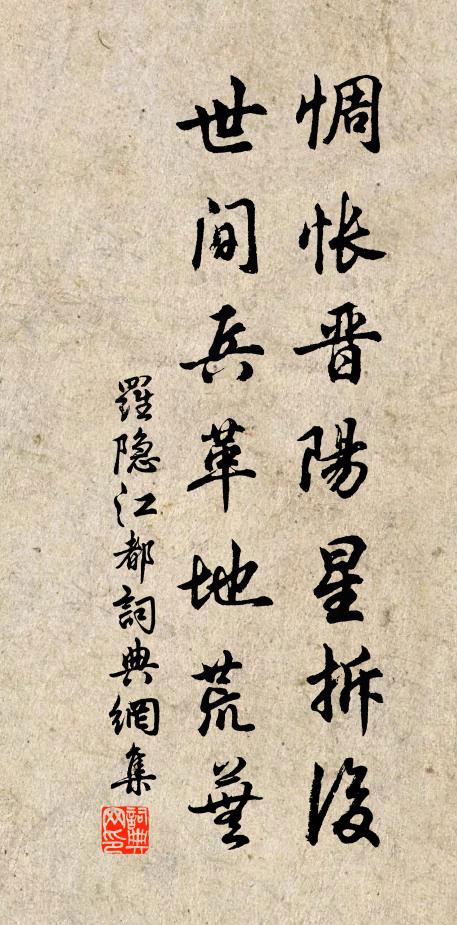 惆悵晋陽星拆後
世間兵革地荒蕪
羅隐江都詞典網集
詞典网印